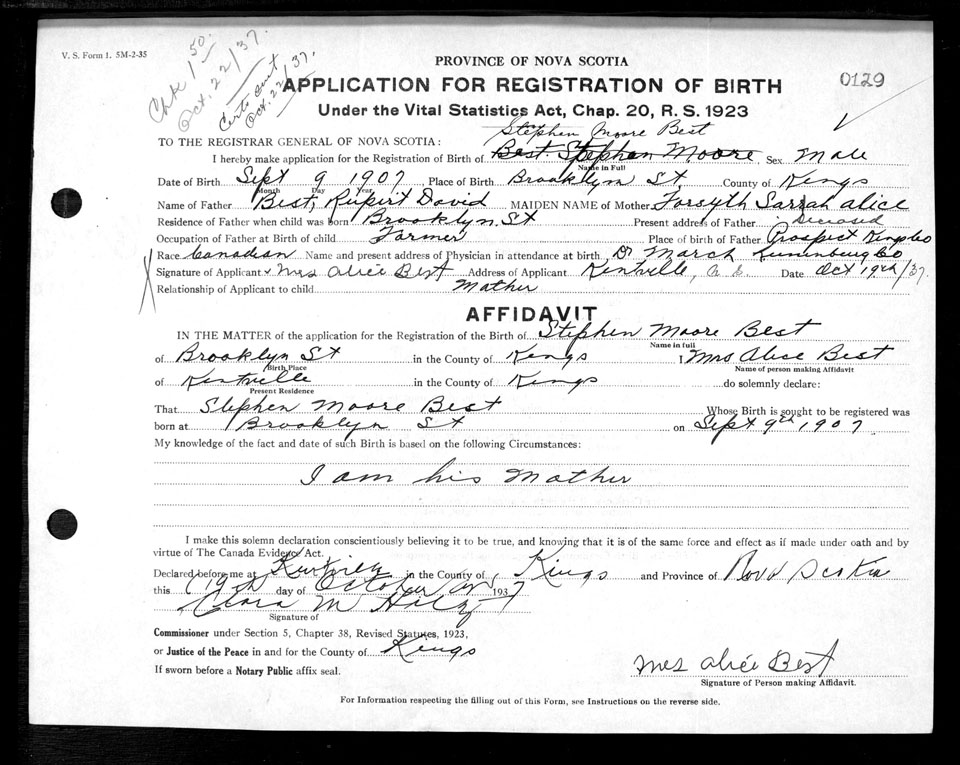 V. S. Form 1. 5M-2-35
Chk 1 50.
Oct. 22/37.
Certs sent
Oct. 22/37.
0129
PROVINCE OF NOVA SCOTIA
APPLICATION FOR REGISTRATION OF BIRTH
Under the Vital Statistics Act, Chap. 20, R. S. 1923
Stephen Moore Best
TO THE REGISTRAR GENERAL OF NOVA SCOTIA:
I hereby make application for the Registration of Birth of Best. Stephen Moore Sex Male
Name in Full
Date of Birth Sept 9 1907 Place of Birth Brooklyn St County of Kings
Month Day Year
Name of Father Best, Rupirt David MAIDEN NAME of Mother Forsyth Sarrah Alice
Residence of Father when child was born Brooklyn. St Present address of Father Deceased
Occupation of Father at Birth of child Farmer Place of birth of Father Prospect Kings Co
Race Canadian Name and present address of Physician in attendance at birth Dr March Lunenburg Co
Signature of Applicant x Mrs Alice Best Address of Applicant Kentville, N. S. Date Oct 19th/37.
Relationship of Applicant to child Mother
AFFIDAVIT
IN THE MATTER of the application for the Registration of the Birth of Stephen Moore Best
Name in full
of Brooklyn St in the County of Kings I Mrs Alice Best
Birth Place Name of person making Affidavit
of Kentville in the County of Kings do solemnly declare:
Present Residence
That Stephen Moore Best Whose Birth is sought to be registered was
born at Brooklyn St on Sept 9th 1907
My knowledge of the fact and date of such Birth is based on the following Circumstances:
I am his Mother
I make this solemn declaration conscientiously believing it to be true, and knowing that it is of the same force and effect as if made under oath and by
virtue of The Canada Evidence Act.
Declared before me at in the County of Kings and Province of Nova Scotia
this 19th day of October 1937
Clara M
Signature of
Commissioner under Section 5, Chapter 38, Revised Statutes, 1923,
or Justice of the Peace in and for the County of Kings
If sworn before a Notary Public affix seal.
Mrs Alice Best
Signature of Person making Affidavit.
For Information respecting the filling out of this Form, see Instructions on the reverse side.